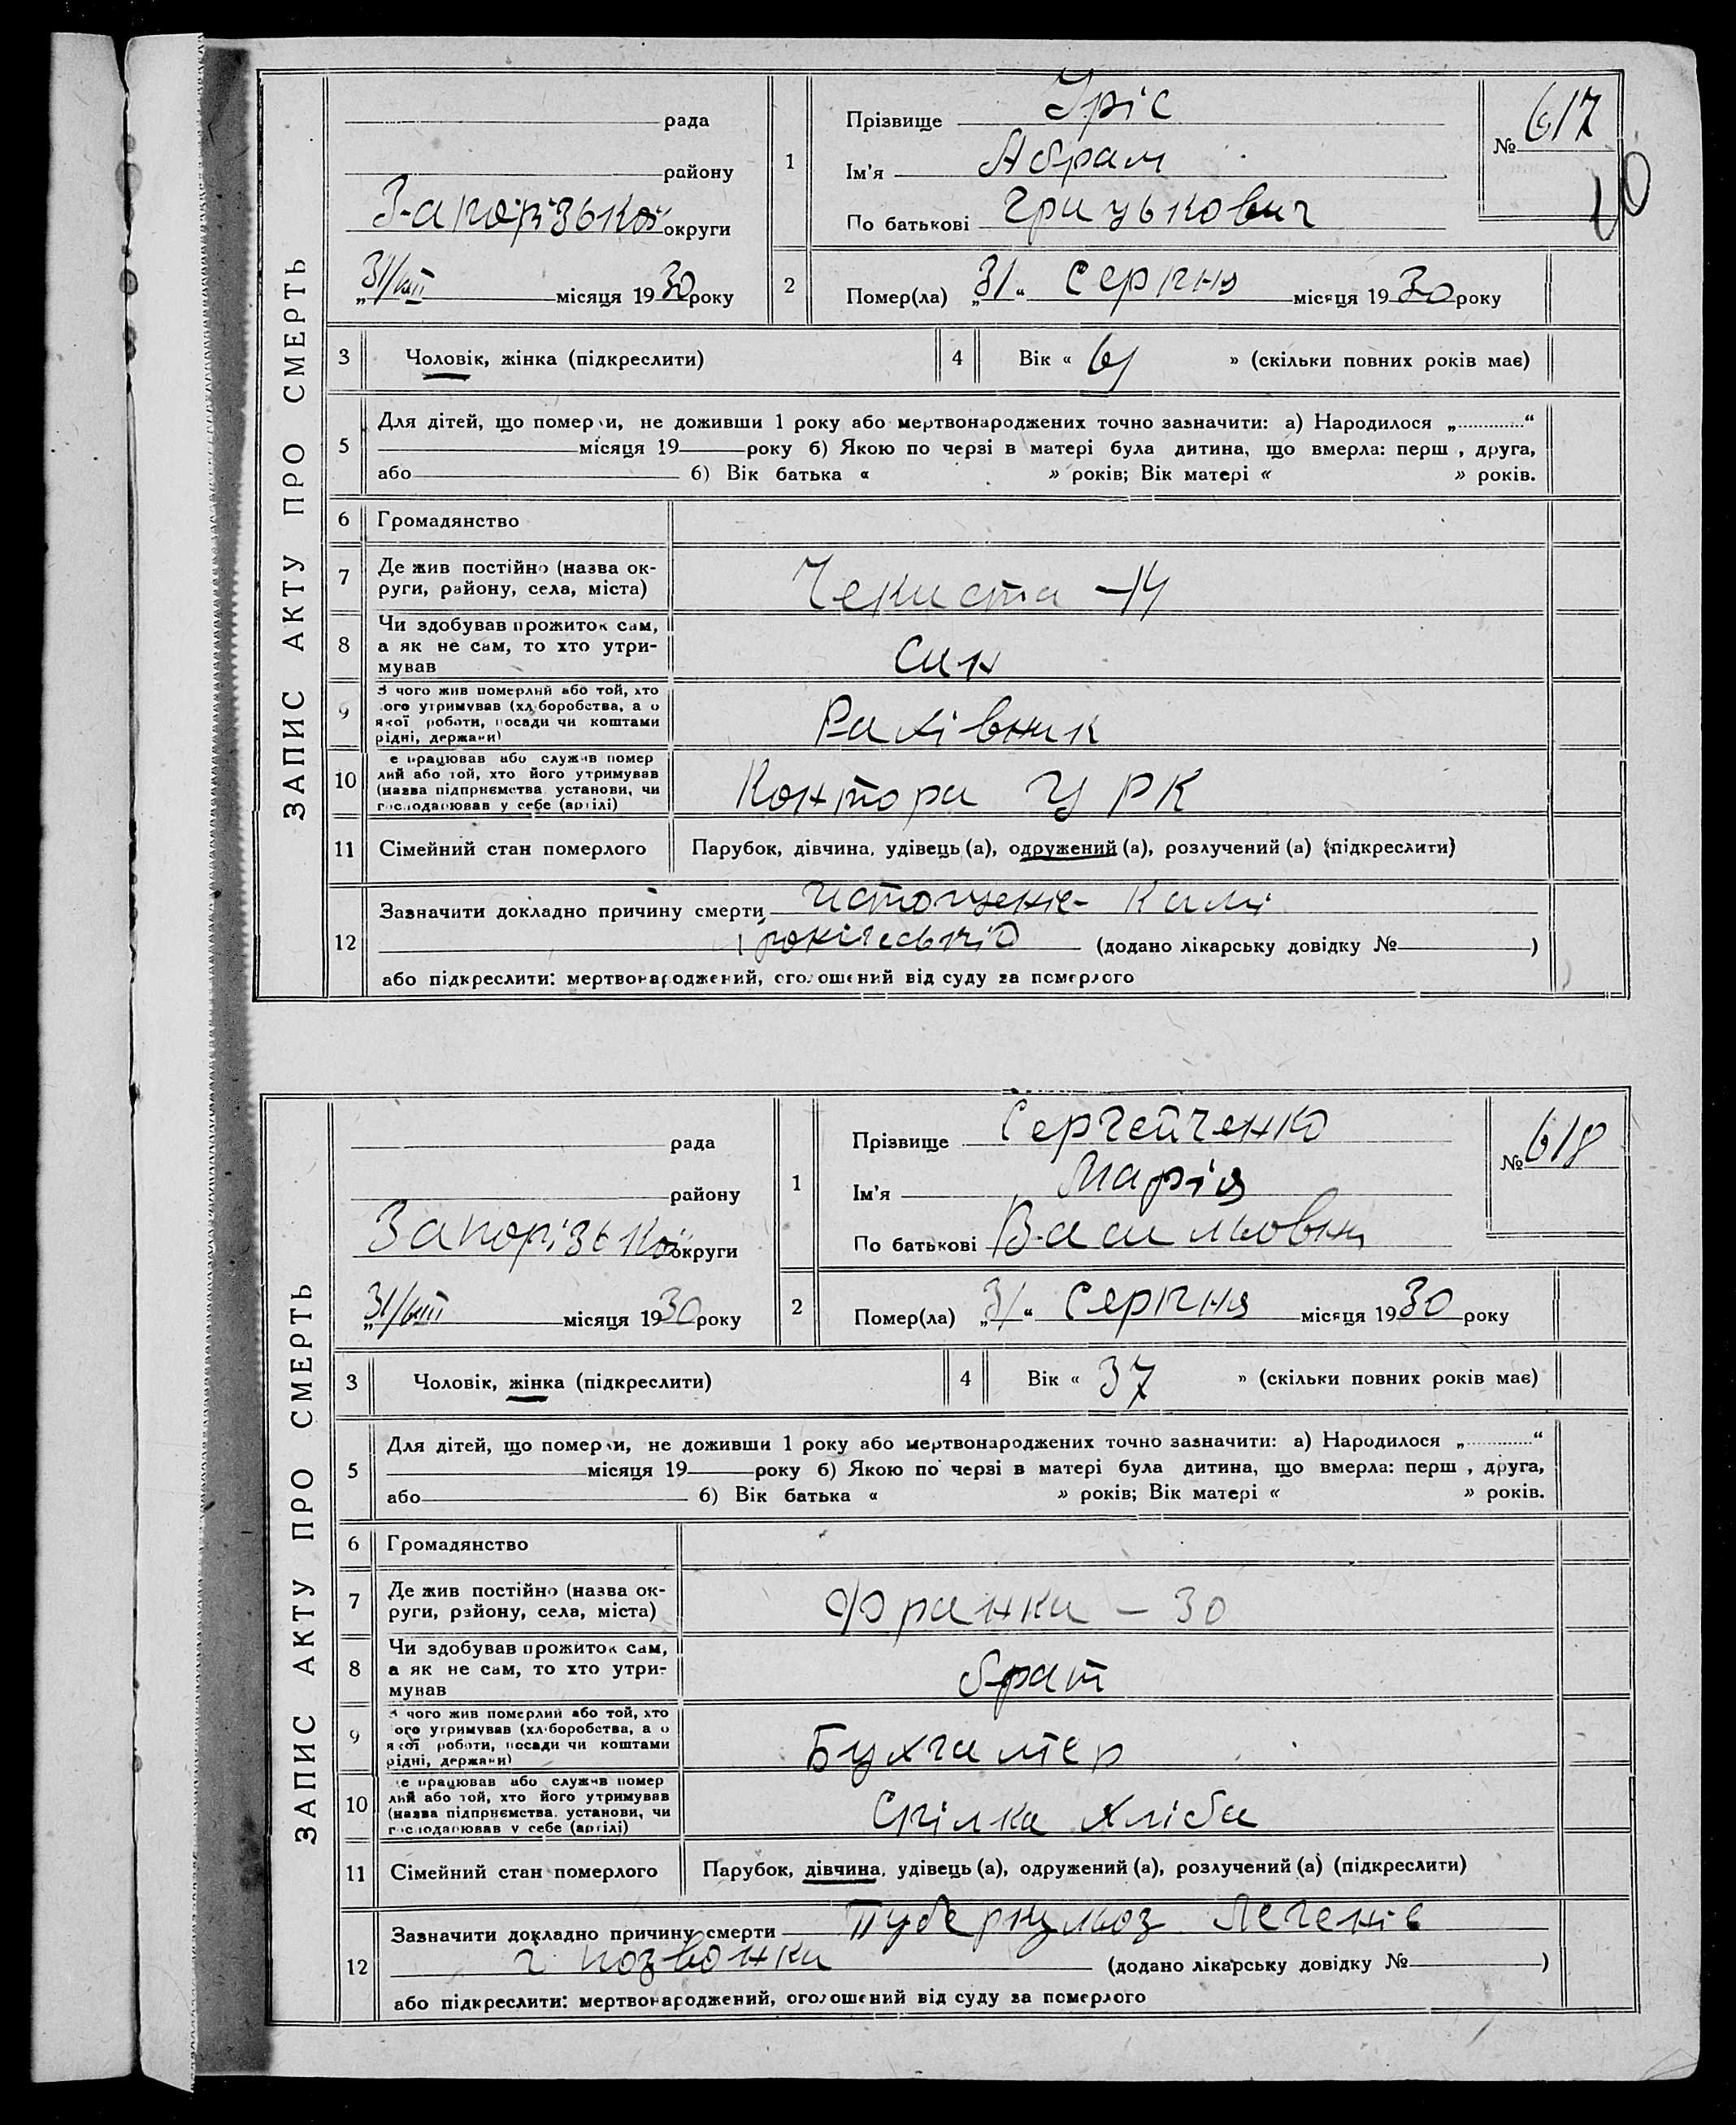 ЗАПИС АКТУ ПРО СМЕРТЬ
рада
району
Запорізької округи
„31/VIII місяця 1930 року
1
Прізвище Уріс
Ім'я Абрам
По батькові Грицькович
№ 617
2
Помер(ла) „31“ Серпня місяця 1930 року
3 Чоловік, жінка (підкреслити)
4 Вік « » (скільки повних років має)
5 Для дітей, що померли, не доживши 1 року або мертвонароджених точно зазначити: а) Народилося „ “
місяця 19 року б) Якою по черзі в матері була дитина, що вмерла: перш , друга,
або б) Вік батька « » років; Вік матері « » років.
6 Громадянство
7 Де жив постійно (назва ок-
руги, району, села, міста)
Чекиста – 14
8 Чи здобував прожиток сам,
а як не сам, то хто утри-
мував
син
9 З чого жив померлий або той, хто
ого утримував (хліборобства, а о
якої роботи, посади чи коштами
рідні, держави)
Рахівник
10 е працював або служив помер
лий або той, хто його утримував
(назва підприємства установи, чи
господарював у себе (артілі)
Контора ЦРК
11 Сімейний стан померлого Парубок, дівчина, удівець (а), одружений (а), розлучений (а) (підкреслити)
12 Зазначити докладно причину смерти
(додано лікарську довідку № )
або підкреслити: мертвонароджений, оголошений від суду за померлого
ЗАПИС АКТУ ПРО СМЕРТЬ
рада
району
Запорізької округи
„31/VIII місяця 1930 року
1
Прізвище Сергейченко
Ім'я Марія
По батькові Васильовна
№ 618
2
Помер(ла) „31“ Серпня місяця 1930 року
3 Чоловік, жінка (підкреслити)
4 Вік « 37 » (скільки повних років має)
5 Для дітей, що померли, не доживши 1 року або мертвонароджених точно зазначити: а) Народилося „ “
місяця 19 року б) Якою по черзі в матері була дитина, що вмерла: перш , друга,
або б) Вік батька « » років; Вік матері « » років.
6 Громадянство
7 Де жив постійно (назва ок-
руги, району, села, міста)
Франка – 30
8 Чи здобував прожиток сам,
а як не сам, то хто утри-
мував
брат
9 З чого жив померлий або той, хто
ого утримував (хліборобства, а о
якої роботи, посади чи коштами
рідні, держави)
Бухгалтер
10 е працював або служив помер
лий або той, хто його утримував
(назва підприємства, установи, чи
господарював у себе (артілі)
Спілка хліба
11 Сімейний стан померлого Парубок, дівчина, удівець (а), одружений (а), розлучений (а) (підкреслити)
12 Зазначити докладно причину смерти Туберкульоз Легенів
і позвонка (додано лікарську довідку № )
або підкреслити: мертвонароджений, оголошений від суду за померлого